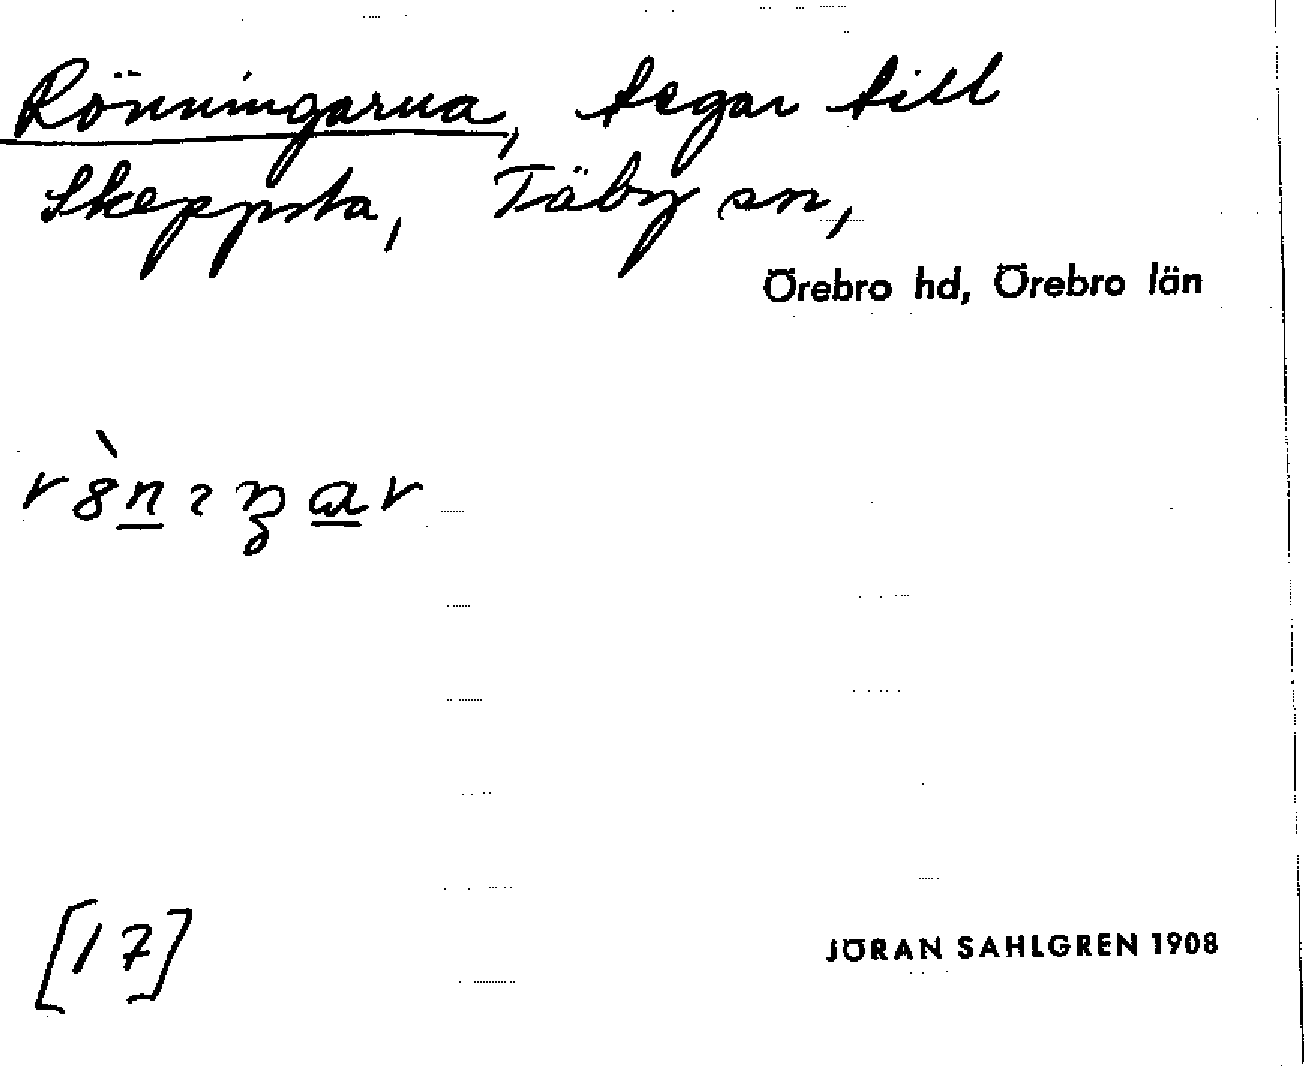 Rönningarna, tegar till
Skeppsta, Täby sn,
Örebro hd, Örebro län
[17]
JÖRAN SAHLGREN 1908